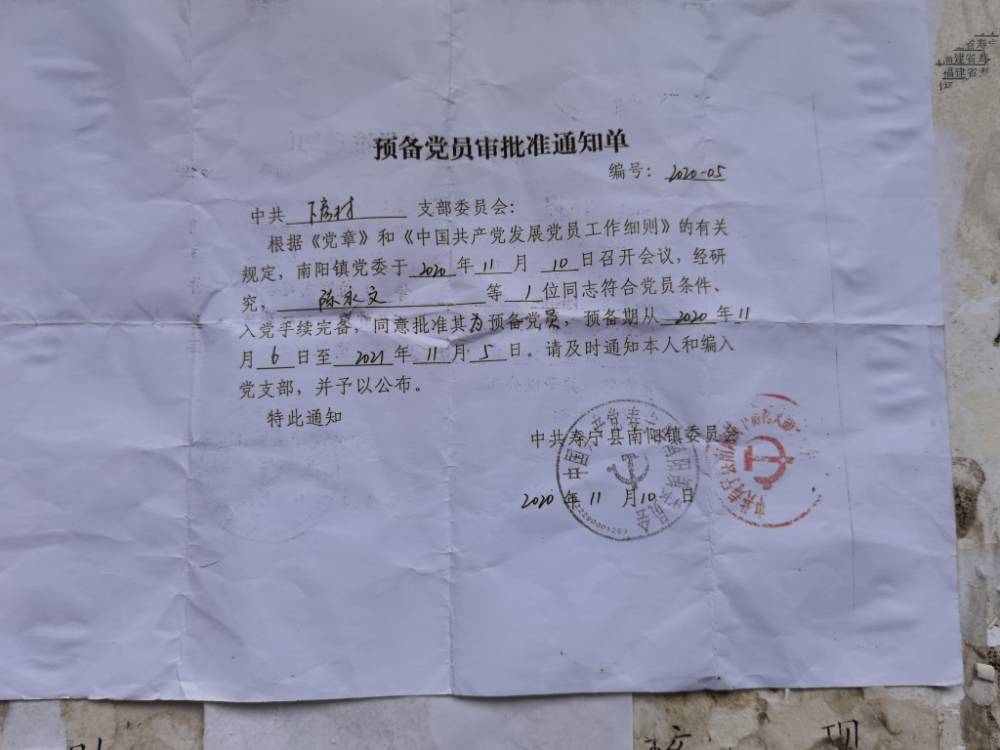 预备党员审批准通知单
编号：2020-05
中共 下房村 支部委员会：
根据《党章》和《中国共产党发展党员工作细则》的有关
规定，南阳镇党委于 2020 年 11 月 10 日召开会议，经研
究， 陈永文 等 1 位同志符合党员条件、
入党手续完备，同意批准其为预备党员，预备期从 2020 年 11
月 6 日至 2021 年 11 月 5 日。请及时通知本人和编入
党支部，并予以公布。
特此通知
中共寿宁县南阳镇委员会
2020 年 11 月 10 日
福建省寿